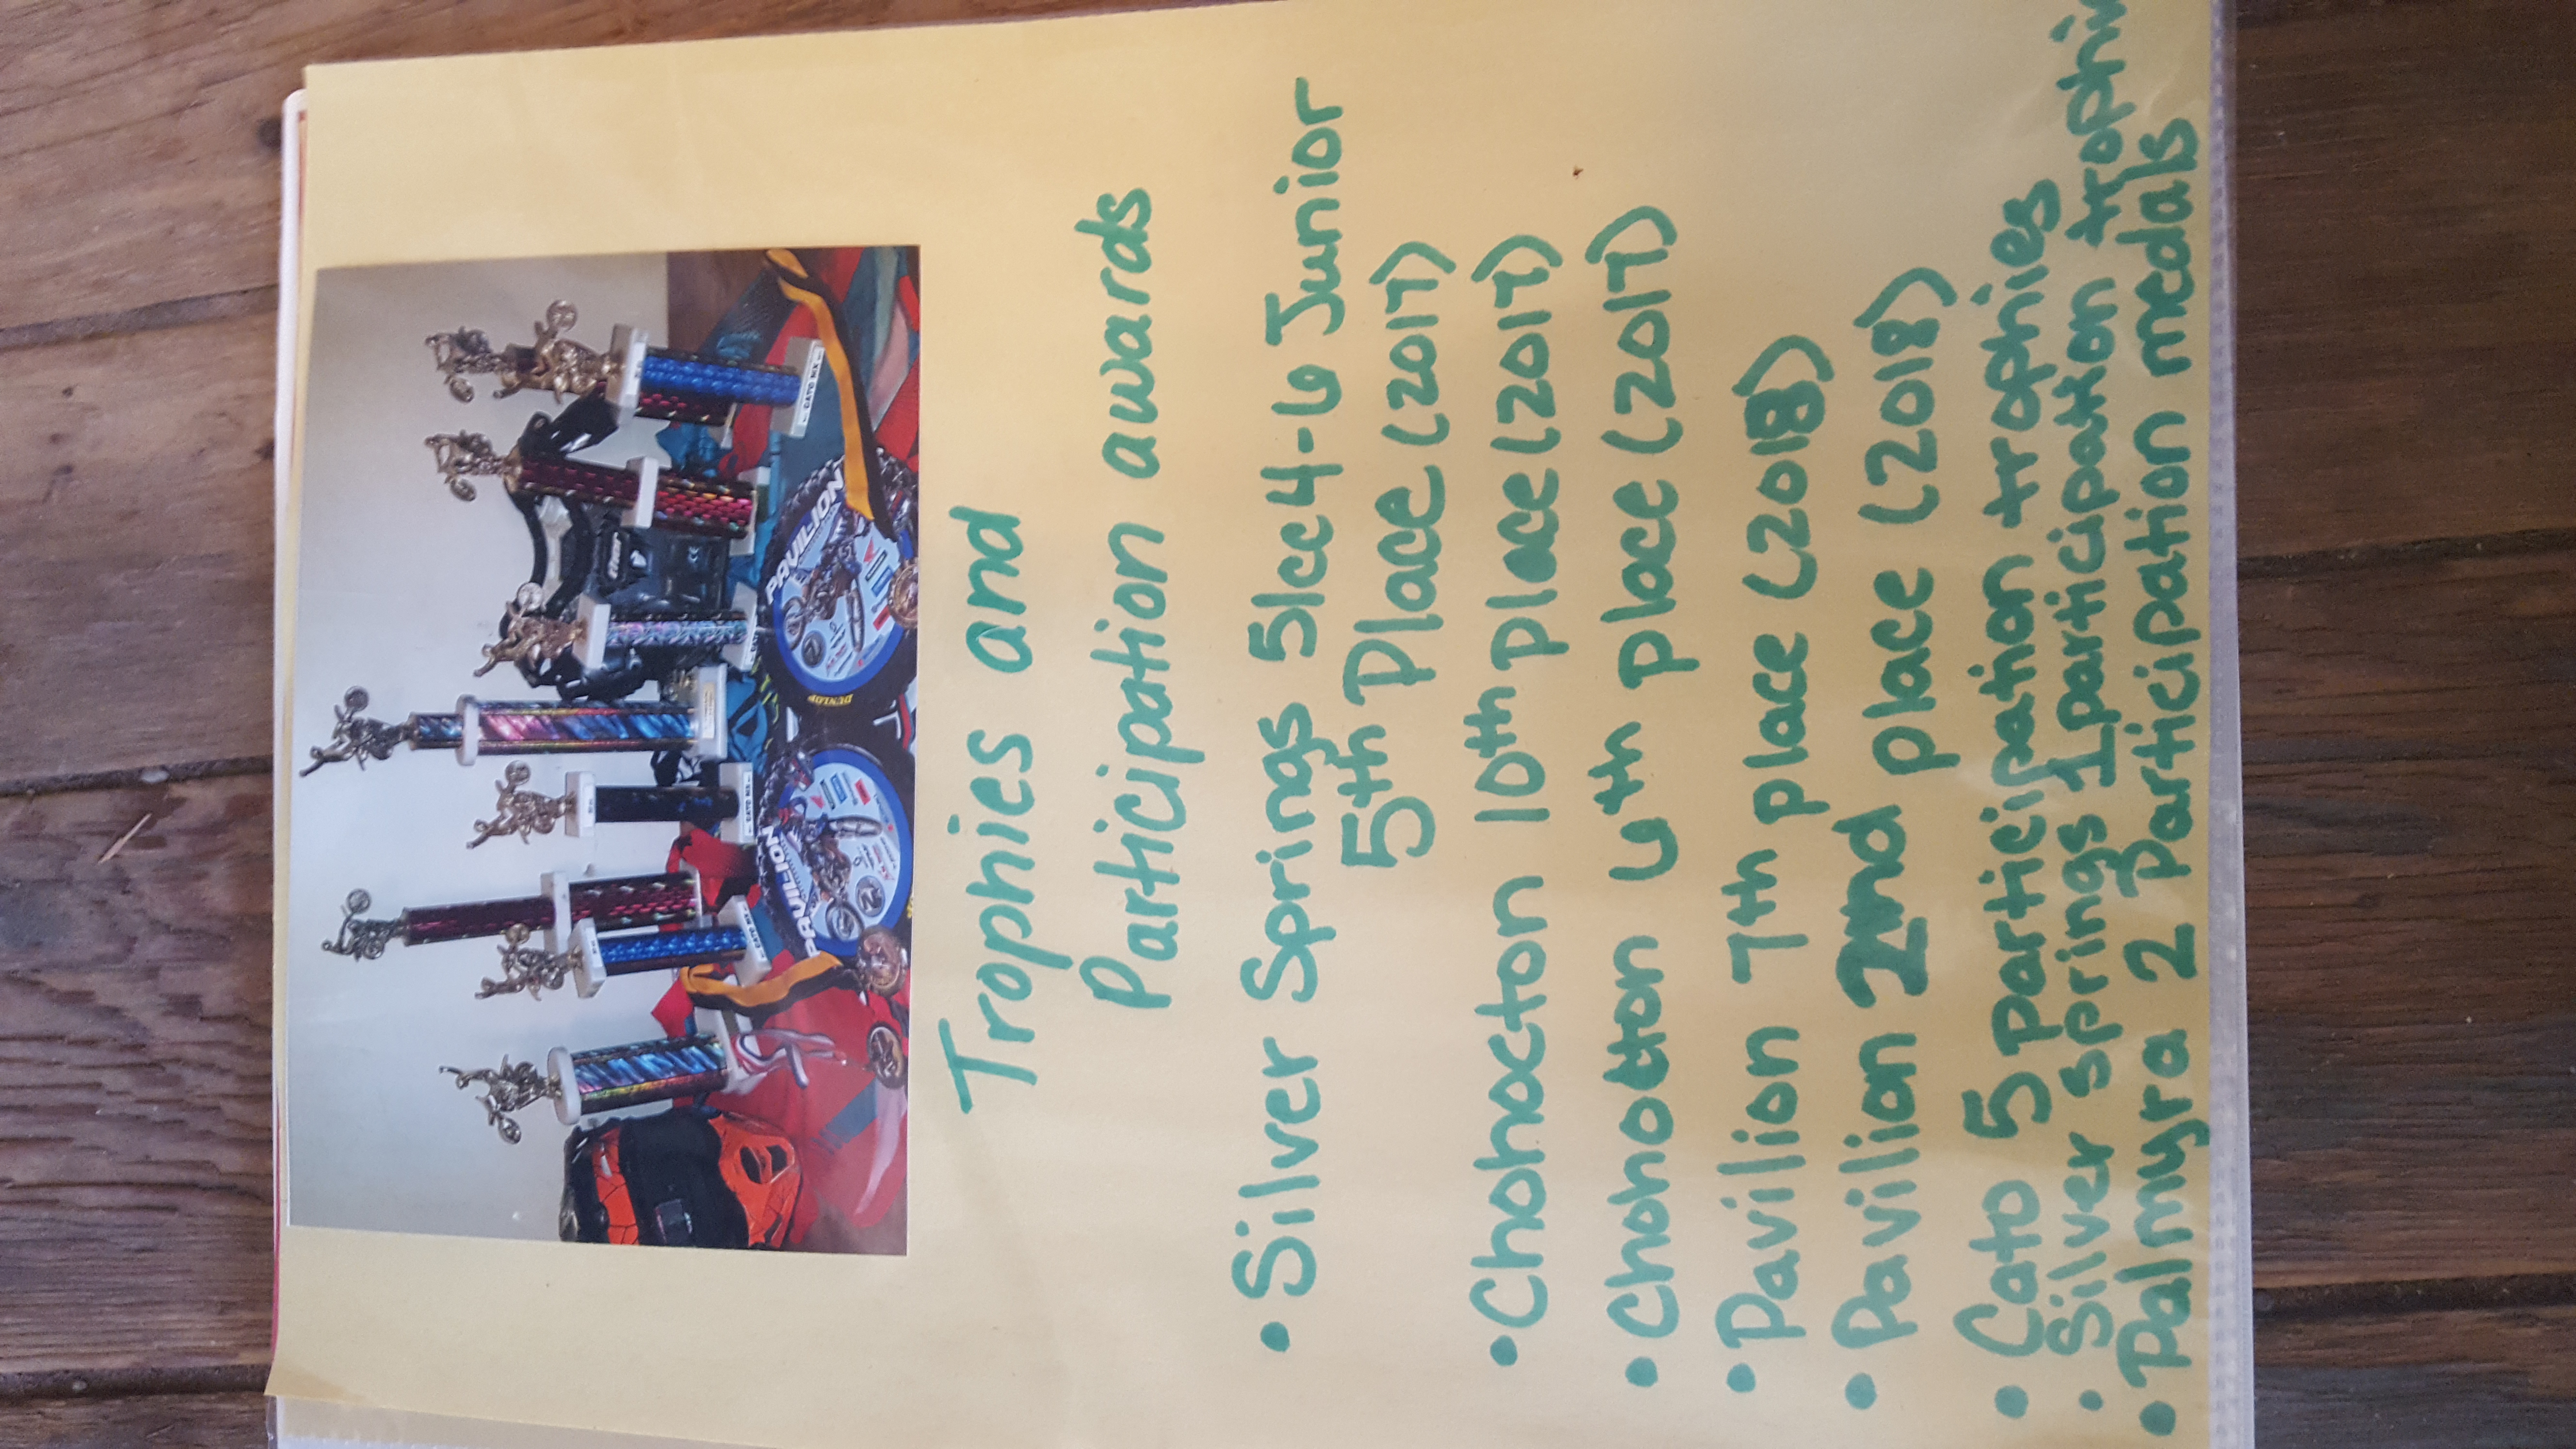 PAVILION
PAVILION
DUNLOP
CATO MX
CATO MX
CATO MX
Trophies and
Participation awards
• Silver Springs 51cc 4-6 Junior
5th Place (2017)
• Chohocton 10th place (2017)
• Chohotton 6th place (2017)
• Pavilion 7th place (2018)
• Pavilion 2nd place (2018)
• Cato 5 participation trophies
• Silver springs 1 participation
• Palmyra 2 Participation medals